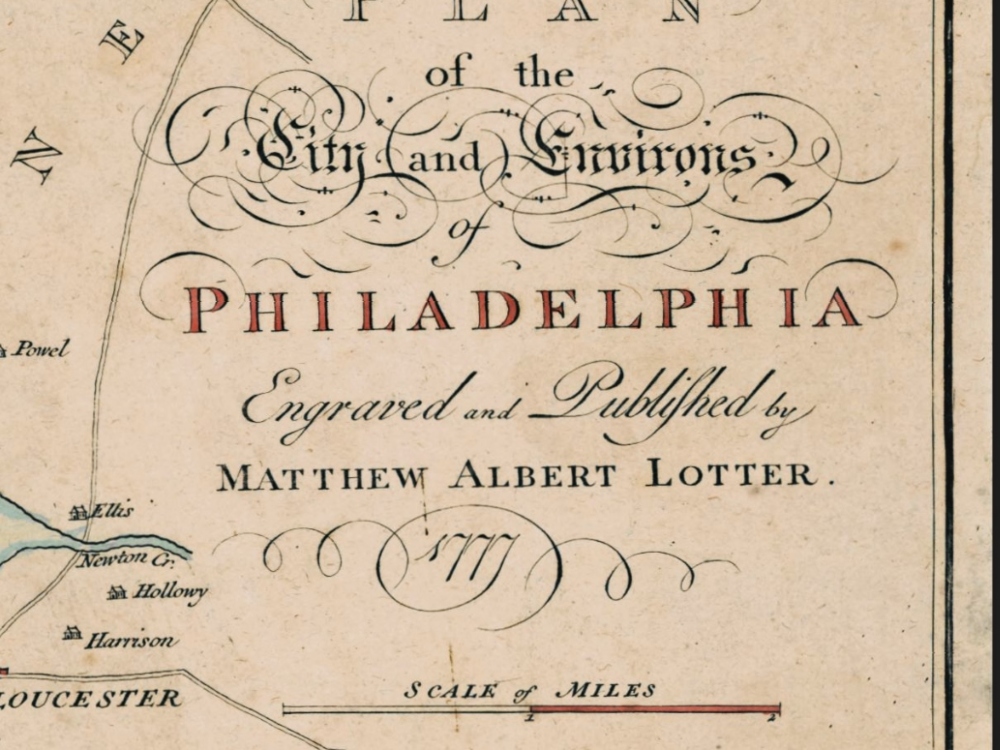 PLAN
of the
City and Environs
of
PHILADELPHIA
Engraved and Publiſhed by
MATTHEW ALBERT LOTTER.
1777
N E
Powel
Ellis
Newton Cr.
Hollowy
Harrison
LOUCESTER
SCALE of MILES
1 2